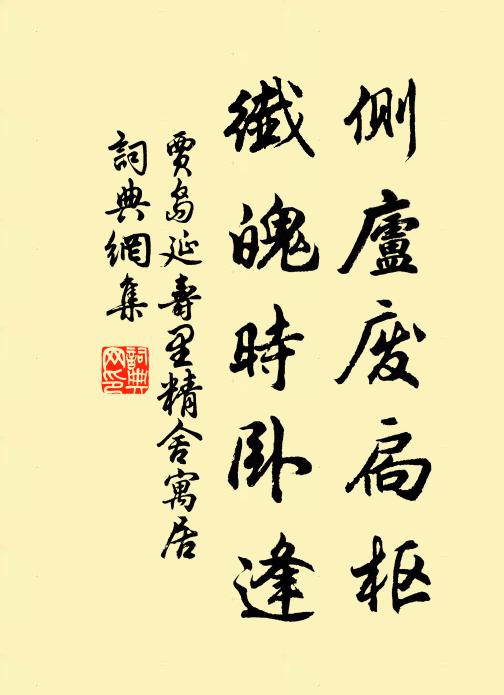 側廬废扃枢
纖魄時卧逢
贾岛延壽里精舍寓居
詞典網集
詞典網印